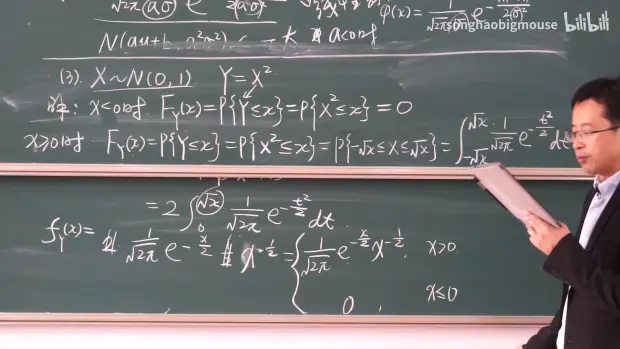 φ(x) =
songhaobigmouse bilibili
(3). X~N(0,1) Y=X²
解: x<0时. F_Y(x)=P{Y≤x}=P{X²≤x}=0
x≥0时 F_Y(x)=P{Y≤x}=P{X²≤x}=P{-√x≤X≤√x}=∫_{-√x}^{√x} 1/√2π e^{-t²/2} dt
=2∫_0^{√x} 1/√2π e^{-t²/2} dt
f_Y(x)= 1/√2π e^{-x/2} x^{-1/2} = { 1/√2π e^{-x/2} x^{-1/2}, x>0
0, x≤0